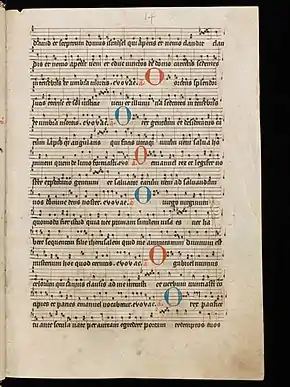 14
david et sceptrum domus israhel qui aperis et nemo claudit clau
dis et nemo aperit veni et educ vinctos de domo carceris sedentes
in tenebris et umbra mortis. evovae. O oriens splendor
lucis eterne et sol iusticie veni et illumina sedentes in tenebris
et umbra mortis. evovae. O rex gentium et desideratus ea
rum lapis que angularis qui facis utraque unum veni salva ho
minem quem de limo formasti. evo O emanuel rex et legifer no
ster expectatio gentium et salvator earum veni ad salvandum
nos domine deus noster. evovae. O virgo virginum
quomodo fiet istud quia nec primam similem visa es nec ha
bere sequentem filie iherusalem quid me admiramini divinum est
misterium hoc quod cernitis. evovae. O gabriel nuntius
celorum qui ianuis clausis ad me intrasti et verbum nuntiasti co
cipies et paries emanuel vocabitur. evovae. O rex pacifice
tu ante secula nate per auream egredere portam redemptos tuos